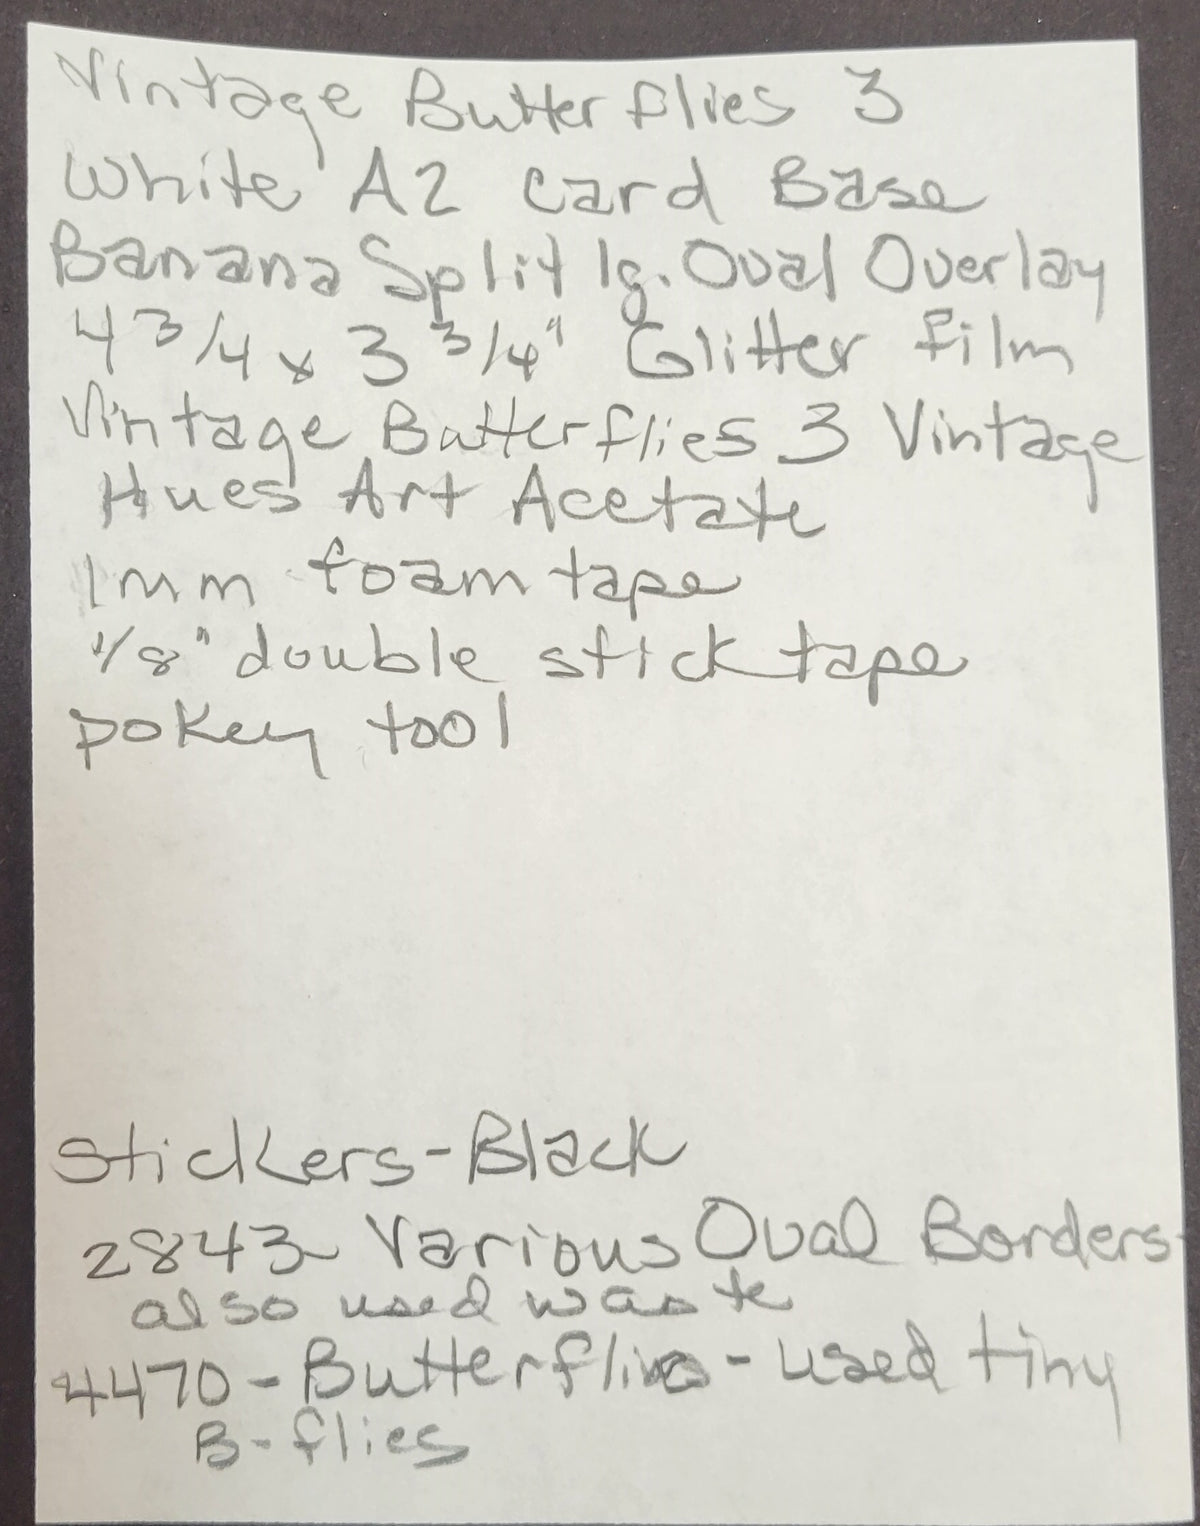 Vintage Butterflies 3
White A2 Card Base
Banana Split lg. Oval Overlay
4 3/4 x 3 3/4" Glitter film
Vintage Butterflies 3 Vintage
Hues Art Acetate
1mm foam tape
1/8" double stick tape
pokey tool
Stickers - Black
2843 - Various Oval Borders -
also used waste
4470 - Butterflies - used tiny
B-flies